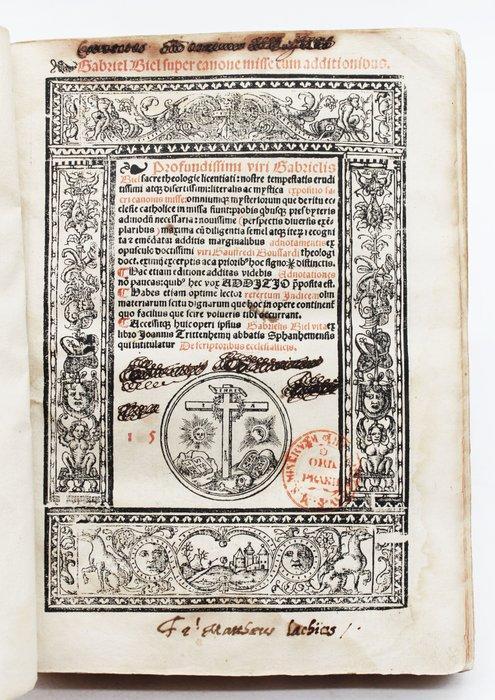 Gabriel Biel super canone misse cum additionibus.
Profundissimi viri Gabrielis
Biel sacre theologie licentiati: nostre tempestatis erudi
tissimi atq̃ disertissimi: literalis ac mystica expositio sa
cri canonis misse: omniumq̃ mysteriorum que de ritu ec
clesie catholice in missa fiunt: presbyteris
admodũ necessaria: nouissime (perspectis diuersis exẽ
plaribus) maxima cũ diligentia semel atq̃ iterũ recogni
ta et emẽdata: additis marginalibus adnotamentis ex
opusculo doctissimi viri Gaufredi Boussardi theologi
doct. eximij excerptis ac a prioribus hoc signo: distinctis.
Hac etiam editione additas videbis Adnotationes
nõ paucas: quibus hec vox ADDITIO p̃posita est.
Habes etiam optime lector repertum Indicem oĩm
materiarum scitu dignarum que hoc in opere continent
quo facilius que scire volueris tibi occurrant.
Accessitq̃ huic operi ipsius Gabrielis Biel vita ex
libro Joannis Trittenhemij abbatis Sphanhemensis
qui intitulatur De scriptoribus ecclesiasticis.
1 5
ORD.
PRAED.
Fr. Mattheus